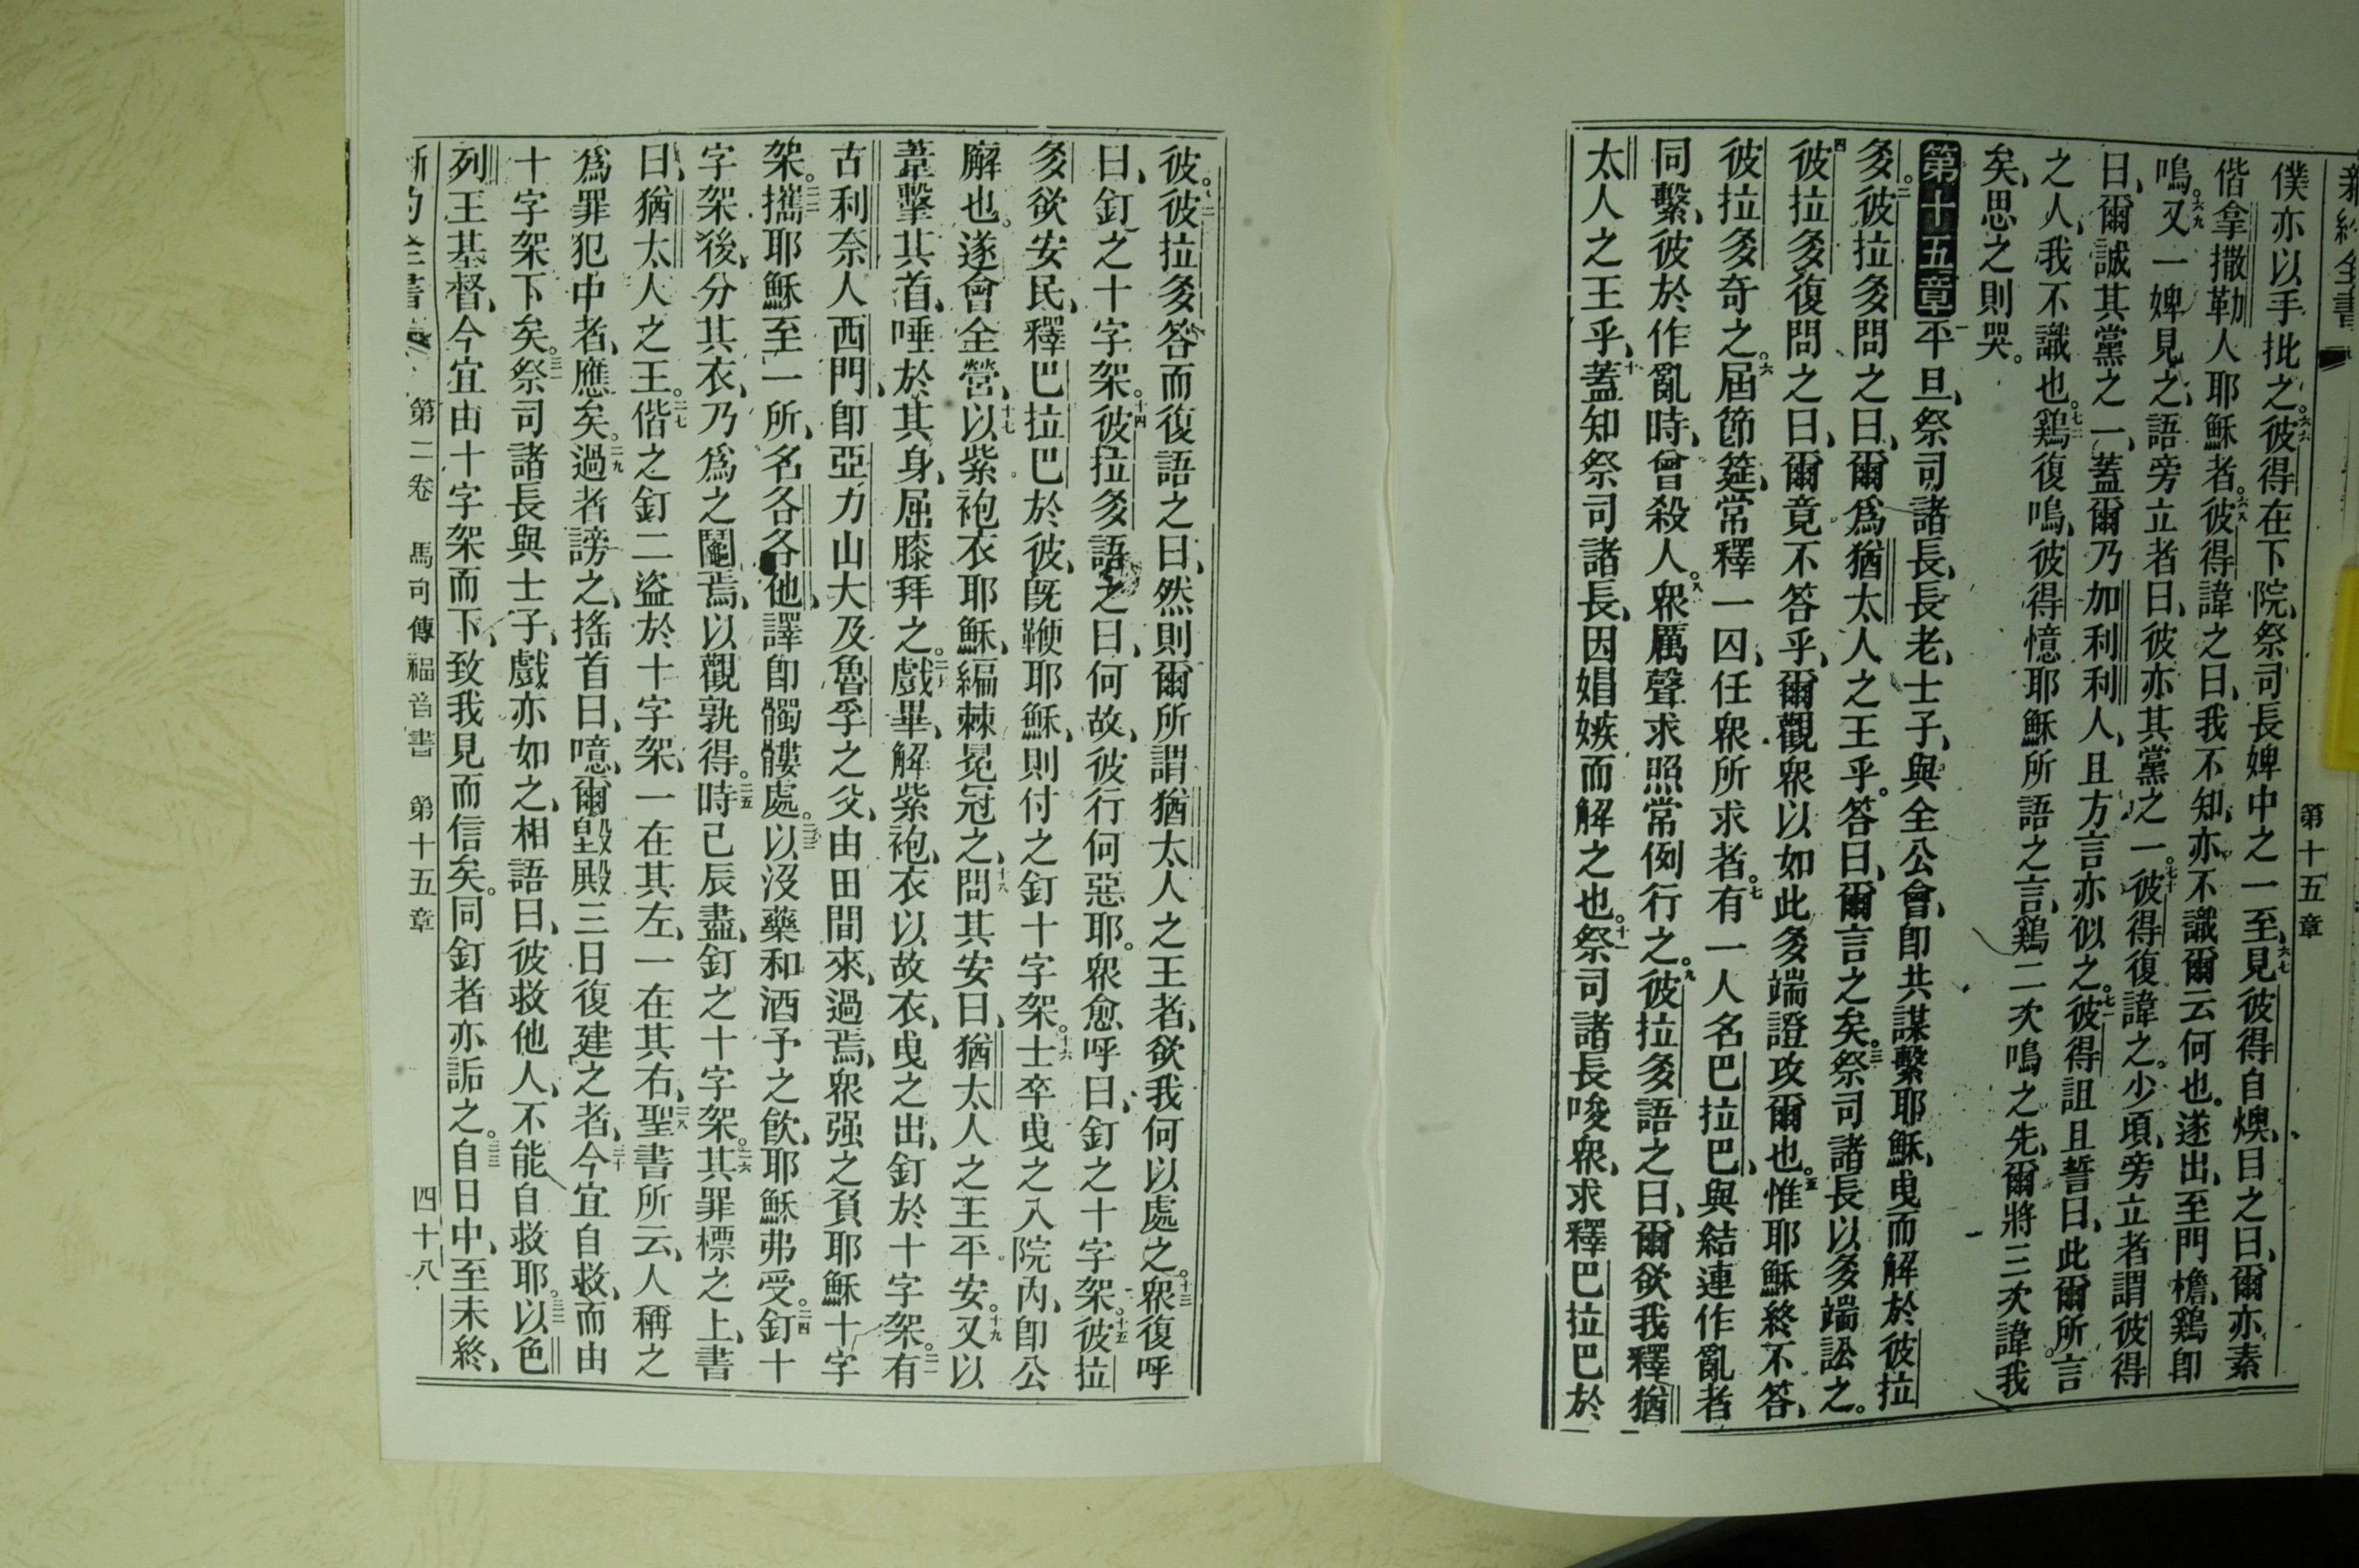 新約全書
第十五章
僕亦以手批之。六六彼得在下院、祭司長婢中之一至、六七見彼得自燠、目之曰、爾亦素
偕拿撒勒人耶穌者。六八彼得諱之曰、我不知、亦不識爾云何也。遂出、至門檐、鷄卽
鳴。六九又一婢見之、語旁立者曰、彼亦其黨之一。七十彼得復諱之。少頃、旁立者謂彼得
曰、爾誠其黨之一、蓋爾乃加利利人、且方言亦似之。七一彼得詛且誓曰、此爾所言
之人、我不識也。七二鷄復鳴、彼得憶耶穌所語之言、鷄二次鳴之先、爾將三次諱我
矣、思之則哭。
第十五章平旦、祭司諸長、長老、士子、與全公會、卽共謀繫耶穌、曳而解於彼拉
多。二彼拉多問之曰、爾爲猶太人之王乎。答曰、爾言之矣。三祭司諸長以多端訟之。
四彼拉多復問之曰、爾竟不答乎、爾觀衆以如此多端證攻爾也。五惟耶穌終不答、
彼拉多奇之。六屆節筵、常釋一囚、任衆所求者。七有一人名巴拉巴、與結連作亂者
同繫、彼於作亂時、曾殺人。八衆厲聲求照常例行之。九彼拉多語之曰、爾欲我釋猶
太人之王乎、十蓋知祭司諸長、因娼嫉而解之也。十一祭司諸長唆衆、求釋巴拉巴於
彼。十二彼拉多答而復語之曰、然則爾所謂猶太人之王者、欲我何以處之。十三衆復呼
曰、釘之十字架。十四彼拉多語之曰、何故、彼行何惡耶。衆愈呼曰、釘之十字架。十五彼拉
多欲安民、釋巴拉巴於彼、旣鞭耶穌、則付之釘十字架。十六士卒曳之入院內、卽公
廨也。遂會全營、十七以紫袍衣耶穌、編棘冕冠之、十八問其安曰、猶太人之王平安。十九又以
葦擊其首、唾於其身、屈膝拜之。二十戲畢、解紫袍、衣以故衣、曳之出、釘於十字架。二一有
古利奈人西門、卽亞力山大及魯孚之父、由田間來、過焉、衆强之負耶穌十字
架。二二攜耶穌至一所、名各各他、譯卽髑髏處。二三以沒藥和酒予之飮、耶穌弗受。二四釘十
字架後、分其衣、乃爲之鬮焉、以觀孰得。二五時已辰盡、釘之十字架。二六其罪標之上、書
曰、猶太人之王。二七偕之釘二盜於十字架、一在其左、一在其右、二八聖書所云、人稱之
爲罪犯中者、應矣。二九過者謗之、搖首曰、噫、爾毀聖殿三日復建之者、三十今宜自救、而由
十字架下矣。三一祭司諸長與士子、戲亦如之、相語曰、彼救他人、不能自救耶。三二以色
列王基督、今宜由十字架而下、致我見而信矣。同釘者亦詬之。三三自日中、至未終、
新約全書 第二卷 馬可傳福音書 第十五章 四十八